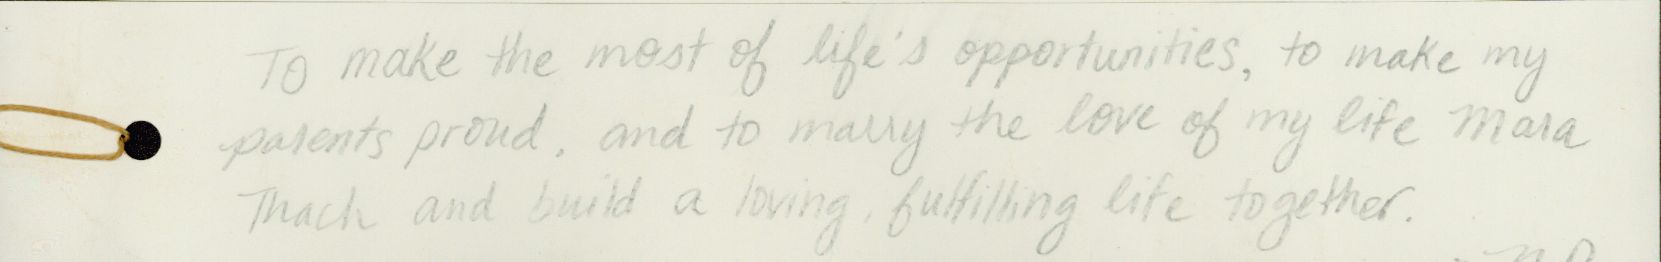 To make the most of life's opportunities, to make my
parents proud, and to marry the love of my life Mara
Thach and build a loving, fulfilling life together.